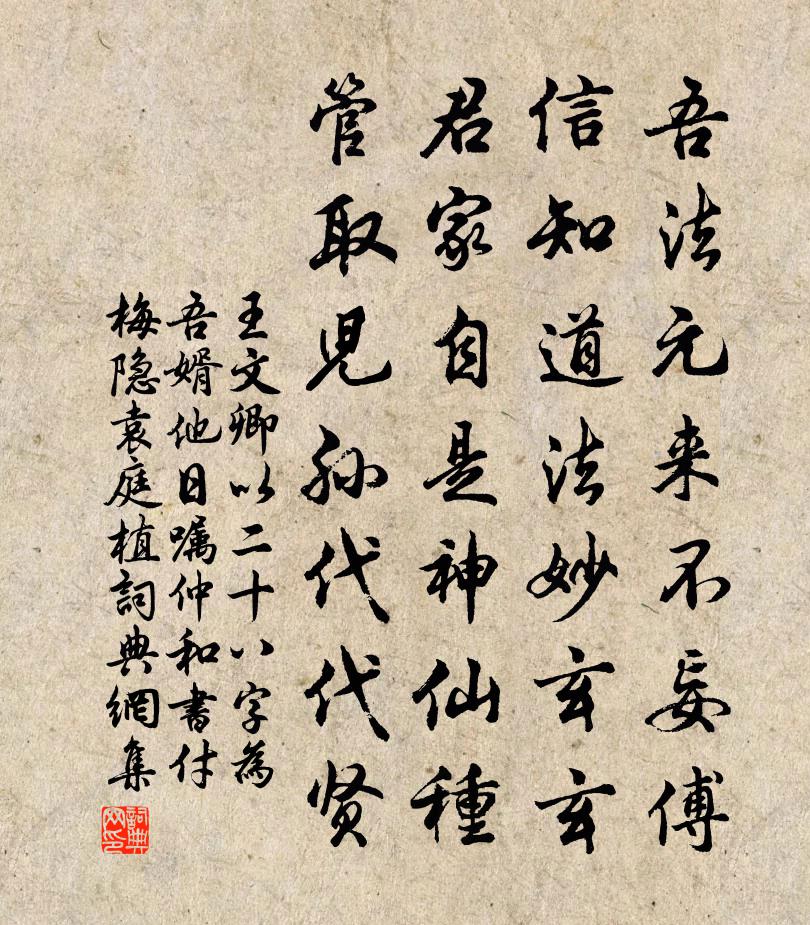 吾法元来不妄傅
信知道法妙玄玄
君家自是神仙種
管取児孙代代贤
王文卿以二十八字為
吾婿他日嘱仲和書付
梅隐袁庭植詞典網集
詞典
网印